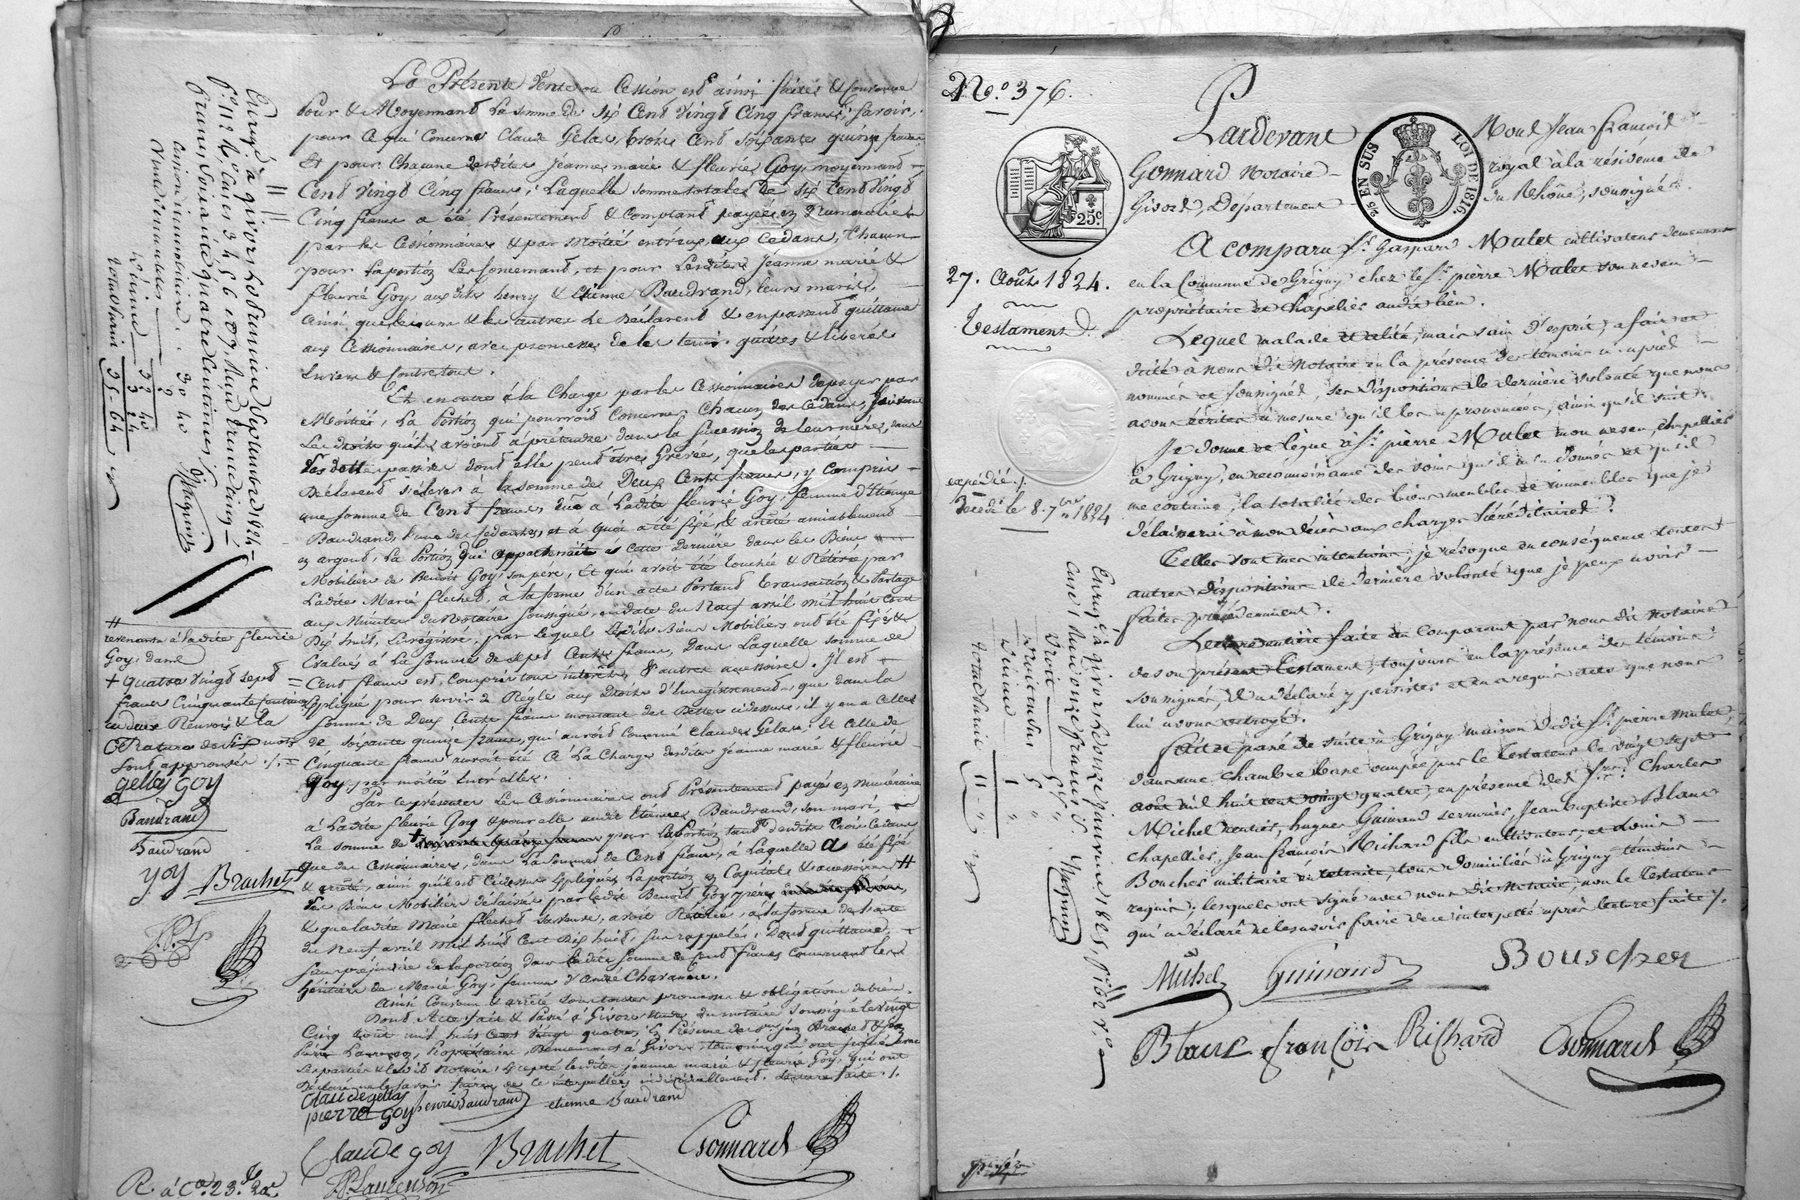 La Présente Vente ou Cession est ainsi faite & convenue
pour & Moyennant La somme de six Cent Vingt Cinq francs, savoir,
pour ce qui Concerne Claude Gelas trois Cent soixante quinze francs
Et pour Chacune desdites Jeanne marie & fleurie Goy, moyennant
Cent Vingt Cinq francs, Laquelle somme totale de six Cent Vingt
Cinq francs a été Présentement & Comptant payée en Numéraire
par les Cessionnaires & par Moitié entr'eux aux Cédans, Chacun
pour La portion Les Concernant, et pour Lesdites Jeanne marie &
fleurie Goy, auxdits henry & Etienne Baudrand, leurs maris,
Ainsi que les uns & les autres Le Déclarent & en passent quittance
aux Cessionnaires, avec promesse de les tenir quittes & libérés
Envers & Contre tous.
Et en outre à la Charge par les Cessionnaires de payer par
Moitié, La Portion qui pourroit Concerner Chacun des Cédans,
Les droits qu'ils avoient à prétendre dans la succession de leur mère, dans
Les dettes passives dont elle peut être Grévée, que les parties
Déclarent s'élever à la somme de Deux Cents francs, y Compris
une somme de Cent francs, Due à Ladite fleurie Goy, femme d'Etienne
Baudrand, l'une des Cédantes, et à quoi a été fixé & arrêté amiablement
en argent, La Portion qui appartenait à cette Dernière dans les Biens
Mobiliers de Benoit Goy, son père, Et qui avoit été touchée & Retirée par
Ladite Marie flechet, à la forme d'un acte Portant transaction & Partage
aux Minutes du Notaire soussigné, en date du Neuf avril mil huit Cent
Dix huit, Enregistré, par lequel Lesdits Biens Mobiliers ont été fixés &
Evalués à La somme de sept Cents francs, dans Laquelle somme de
Cent francs est Compris tous intérêts & autres accessoires. Il est
Expliqué pour servir de Règle aux Droits d'Enregistrement, que dans la
somme de Deux Cents francs montant des Dettes cidessus, il y en a Celles
de soixante quinze francs, qui auroit Concerné Claude Gelas, Et Celle de
Cinquante francs auroit été à La Charge desdites Jeanne marie & fleurie
Goy, par moitié Entr'elles.
Par les présentes Les Cessionnaires ont Présentement payé en Numéraire
à Ladite fleurie Goy & pour elle audit Etienne Baudrand, son mari,
La somme de + pour la portion tant desdits trois Cédans
que des Cessionnaires, dans La somme de Cent francs, à Laquelle a été fixé
& arrêté, ainsi qu'il est Cidessus Expliqué La portion en Capital & accessoires #
des Biens Mobiliers délaissés par ledit Benoit Goy père
& que ladite Marie flechet sa veuve, avoit Retirée à la forme de l'acte
du Neuf avril mil huit Cent Dix huit, sus rappelé, Dont quittance,
sans préjudice de la portion dans ladite somme de Cent francs Concernant les
héritiers de Marie Goy, femme d'André Charanne.
Ainsi Convenu & arrêté sous toutes promesses & obligations de bien.
Dont Acte fait & Passé à Givors Etude du notaire soussigné le Vingt
Cinq aout mil huit Cent Vingt quatre, En Présence des Srs Jean Brachet &
Pierre Laurençon, Propriétaires, Demeurant à Givors, témoins qui ont signé avec
Les parties & ledit Notaire, Excepté lesdites jeanne marie & fleurie Goy, qui ont
Déclaré ne le savoir faire de ce interpellées individuellement. Lecture faite ./.
Claude gellas
pierre goy henri Baudrand etienne Baudrand
Claude goy Brachet Gonnard
P Laurençon
Enregé à givors le trois Septembre 1824
fo 112 Ro, Cases 3 4 5 6 et 7, Reçu
francs soixante quatre Centimes.
Cession immobilière 30 40
Décime 3 24
Total 35-64
#
revenante à ladite fleurie
Goy, dame
+ quatre Vingt sept =
francs Cinquante Centimes
Les deux Renvois & La
Rature de six mots
sont approuvés ./. =
gellas goy
Baudrand
Baudrand
goy Brachet
P.L
R. à Co. 23.
No. 376.
Pardevant Nous Jean François
Gonnard Notaire royal à la résidence de
Givors, Département du Rhône, soussigné.
25 EN SUS LOI DE 1816.
25c
27. Août 1824.
Testament.
expédié ./.
Décédé le 8. 7bre 1824
A comparu Sr. Gaspard Mulet cultivateur demeurant
en la Commune de Grigny chez le Sr. pierre Mulet son neveu
propriétaire et chapelier audit lieu.
Lequel malade et alité, mais sain d'esprit, a fait et
dicté à nous dit Notaire en la présence des témoins ci-après
nommés et soussignés, ses dispositions de dernière volonté que nous
avons écrites à mesure qu'il les a prononcées, ainsi qu'il suit.
Je donne et lègue à Sr. pierre Mulet mon neveu, chapelier
à Grigny, en reconnaissance des soins qu'il m'a donnés et qu'il
me continue, la totalité des biens meubles et immeubles que je
délaisserai à mon décès aux charges héréditaires.
Telles sont mes intentions, je révoque en conséquence toutes
autres dispositions de dernière volonté que je peux avoir
faites précédemment.
Lecture entière faite au comparant par nous dit notaire
de son présent testament, toujours en la présence des témoins
soussignés, il a déclaré y persister et en a requis acte que nous
lui avons octroyé.
fait et passé de suite à Grigny maison dudit Sr. pierre Mulet,
dans une chambre basse occupée par le testateur le vingt sept
août mil huit cent vingt quatre, en présence des Srs. Charles
Michel rentier, hugues Guinand serrurier, Jean Baptiste Blanc
chapelier, Jean françois Richard fils cultivateur, et Louis
Boucher militaire en retraite, tous domiciliés à Grigny témoins
requis, lesquels ont signé avec nous dit Notaire, non le testateur
qui a déclaré ne le savoir faire de ce interpellé après lecture faite ./.
Michel Guinand Bouscher
Blanc françois Richard Gonnard
Enregé à givors le douze janvier 1825, fo 162 Ro
Case 1 Reçu onze francs
Droit
Droit en sus
Décime 1 "
Total 11 "